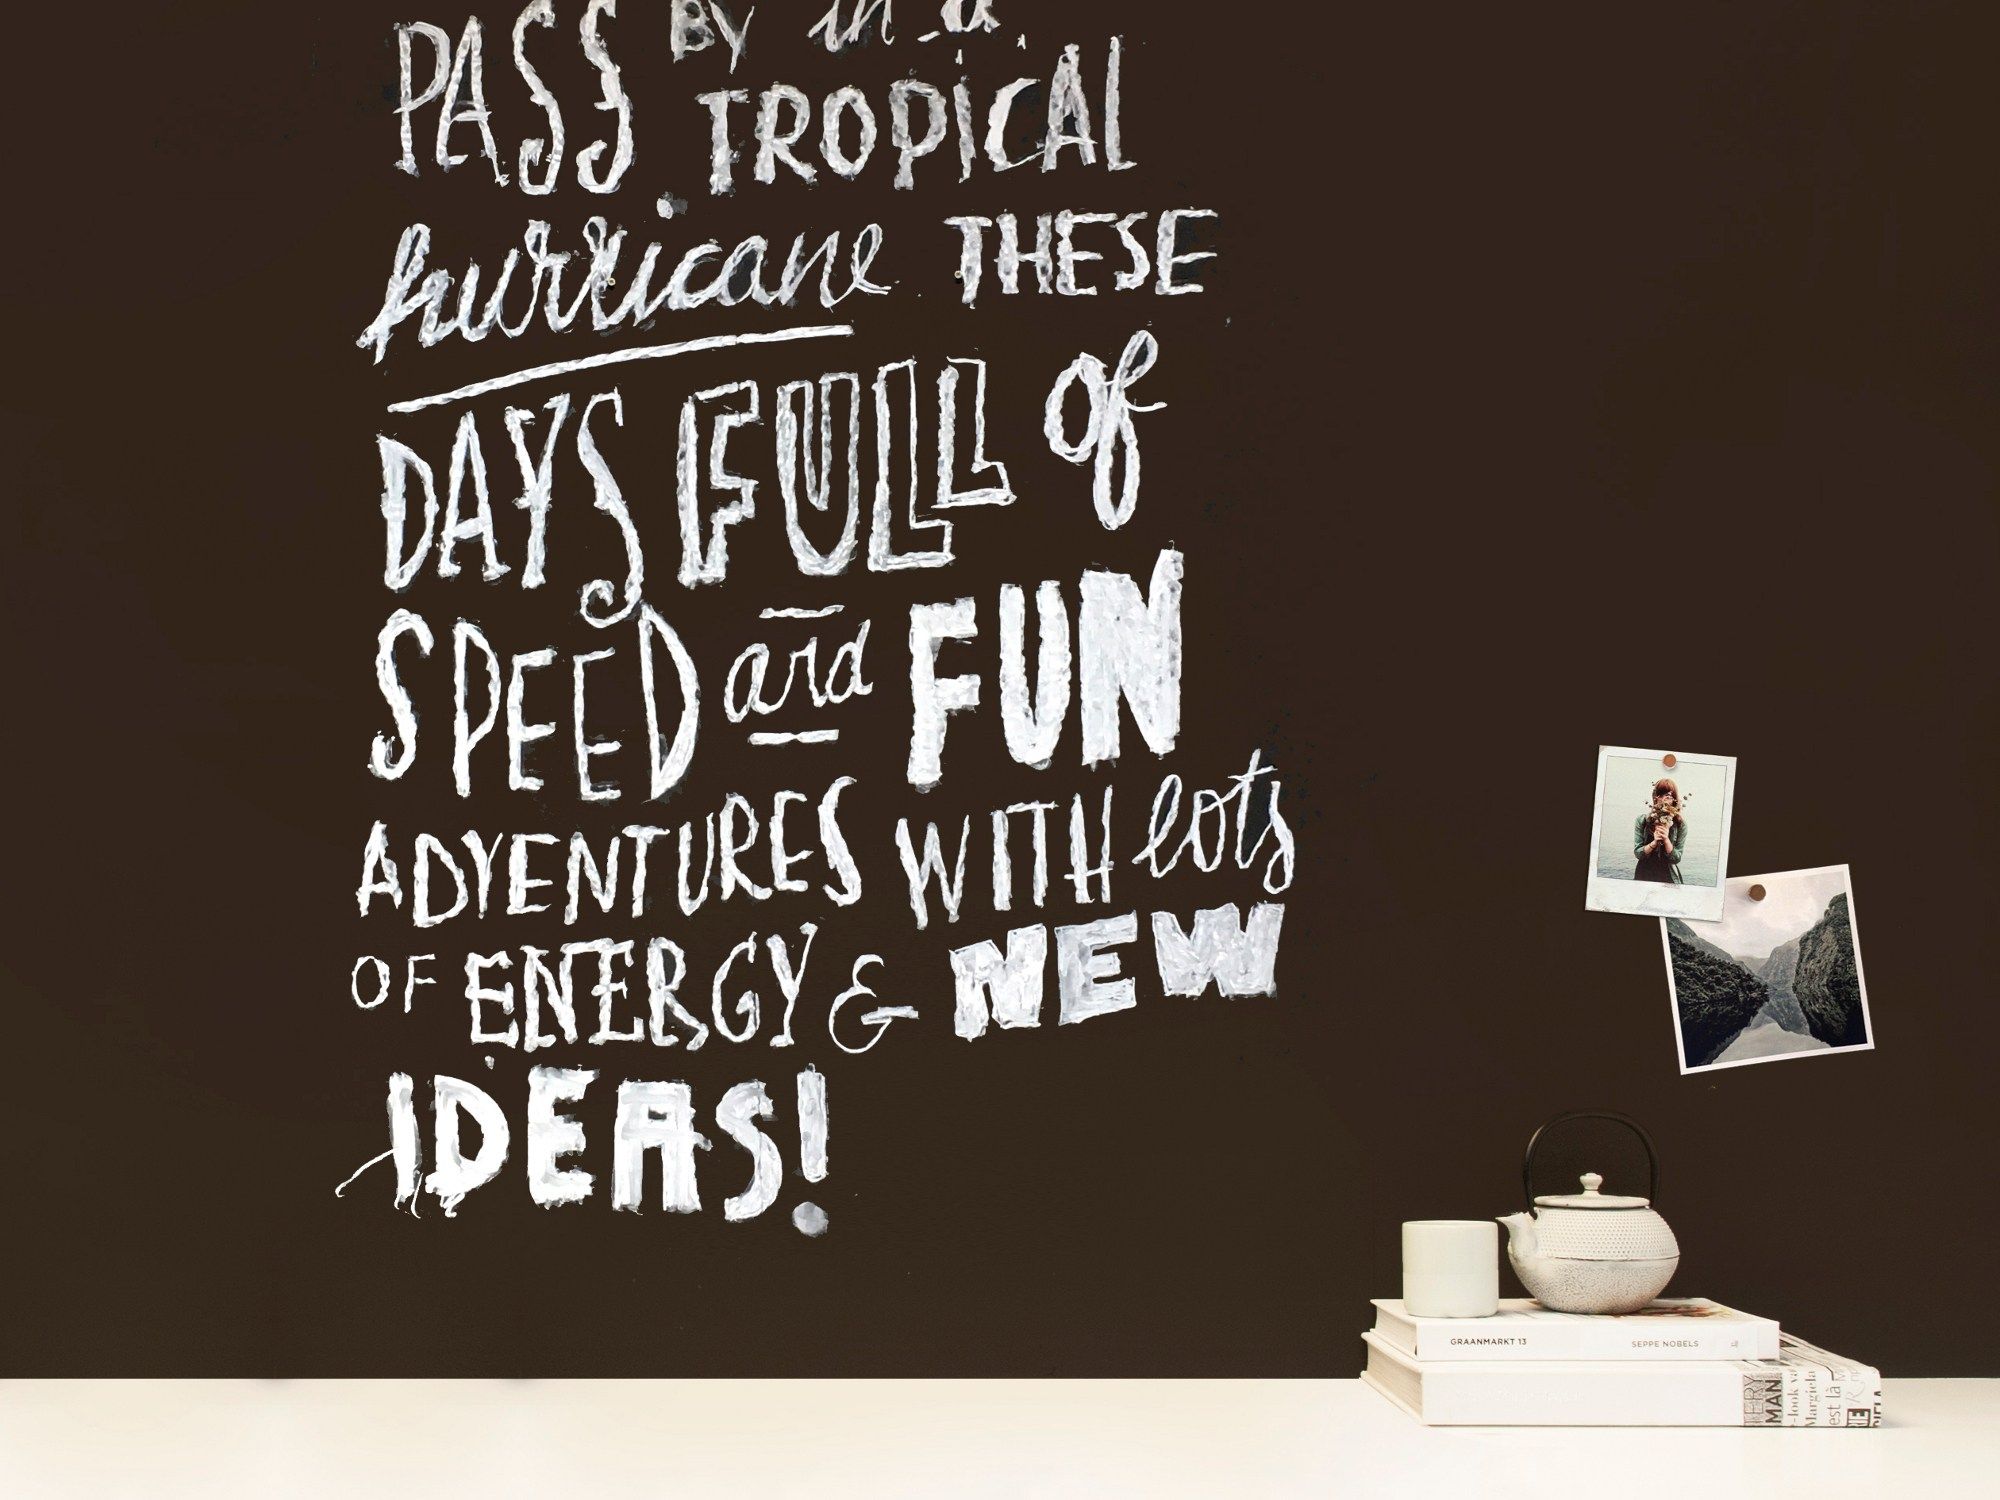 PASS BY in a
TROPICAL
hurricane THESE
DAYS FULL of
SPEED and FUN
ADVENTURES WITH lots
OF ENERGY & NEW
IDEAS!
GRAANMARKT 13 SEPPE NOBELS
MAN
Margiela
est là